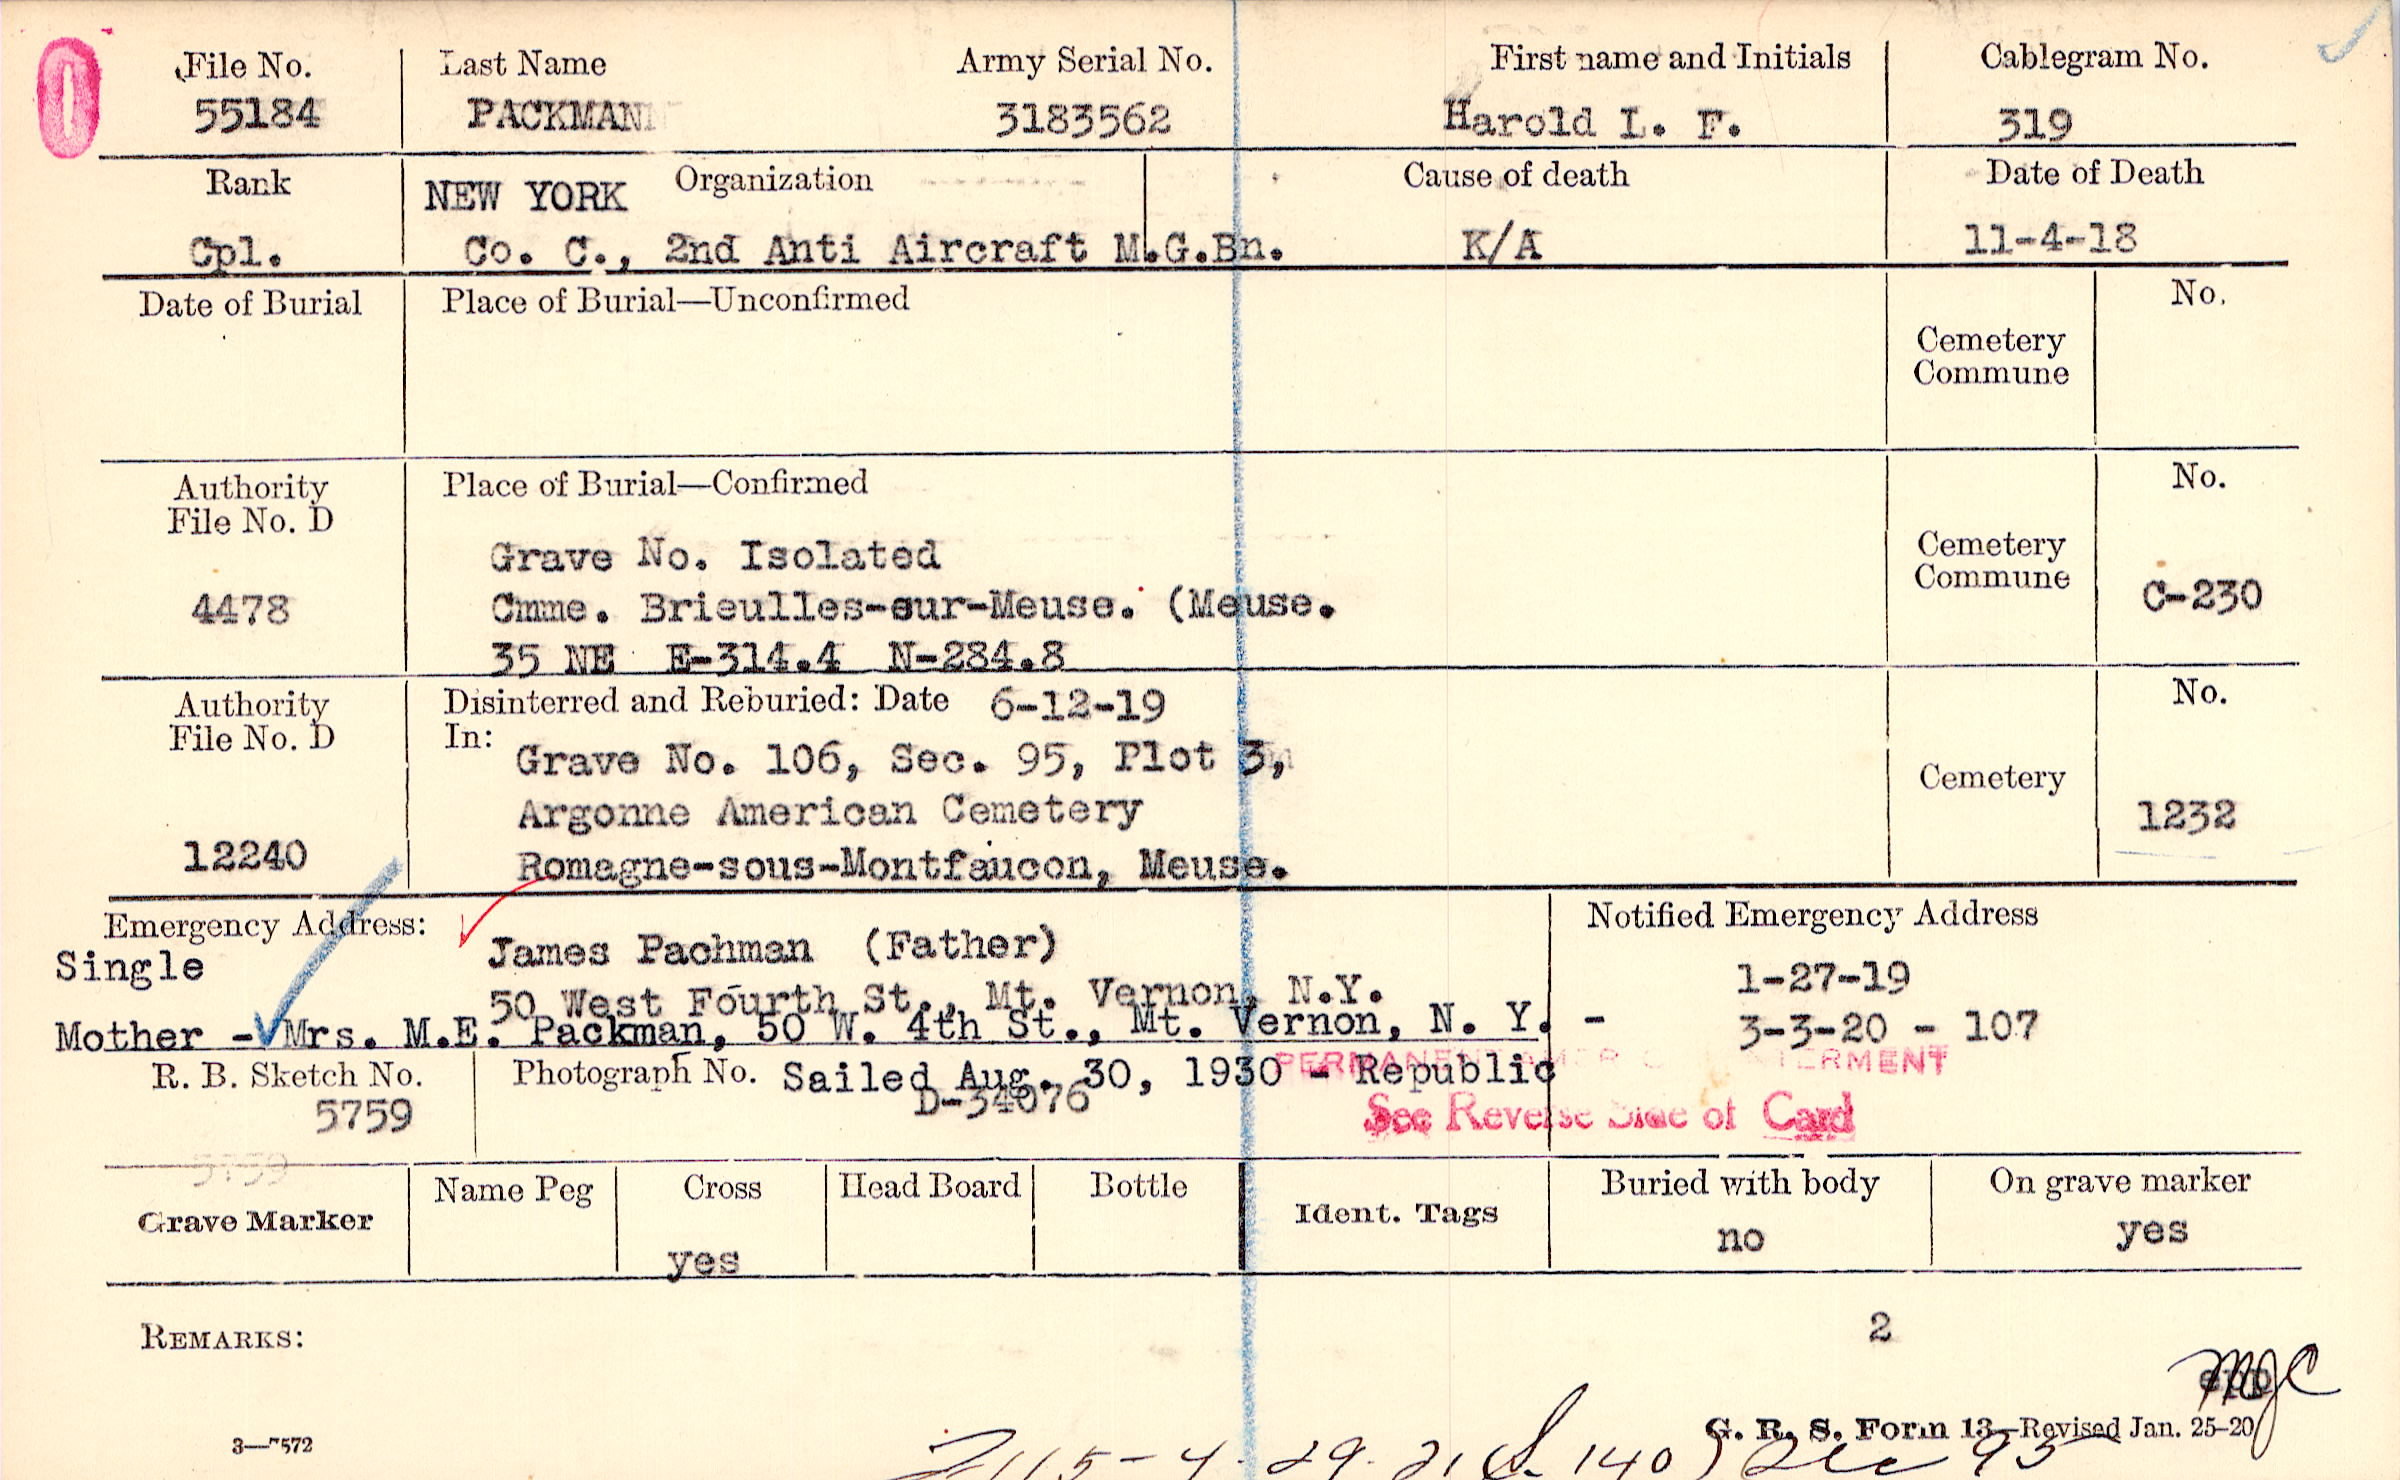 File No. Last Name Army Serial No. First name and Initials Cablegram No.
55184 PACKMAN 3183562 Harold L. F. 319
Rank NEW YORK Organization Cause of death Date of Death
Cpl. Co. C., 2nd Anti Aircraft M.G.Bn. K/A 11-4-18
Date of Burial Place of Burial—Unconfirmed No.
Cemetery
Commune
Authority Place of Burial—Confirmed No.
File No. D
Grave No. Isolated Cemetery
4478 Cmme. Brieulles-sur-Meuse. (Meuse. Commune C-230
35 NE E-314.4 N-284.8
Authority Disinterred and Reburied: Date 6-12-19 No.
File No. D In:
Grave No. 106, Sec. 95, Plot 3, Cemetery
Argonne American Cemetery 1232
12240 Romagne-sous-Montfaucon, Meuse.
Emergency Address: Notified Emergency Address
Single James Pachman (Father) 1-27-19
50 West Fourth St., Mt. Vernon, N.Y.
Mother - Mrs. M.E. Packman, 50 W. 4th St., Mt. Vernon, N. Y. - 3-3-20 - 107
PERMANENT AMERIC INTERMENT
R. B. Sketch No. Photograph No. Sailed Aug. 30, 1930 - Republic
5759 D-34076 See Reverse Side of Card
5759
Grave Marker Name Peg Cross Head Board Bottle Ident. Tags Buried with body On grave marker
yes no yes
REMARKS: 2
MJC
3—7572 G. R. S. Form 13—Revised Jan. 25-20
115-4-29-21 140 Sec 95